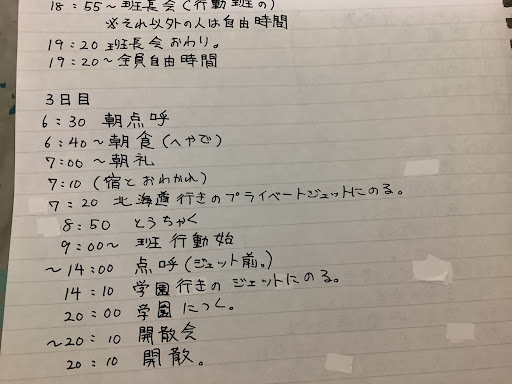 18:55~班長会(行動班の)
※それ以外の人は自由時間
19:20 班長会おわり。
19:20~全員自由時間
3日目
6:30 朝点呼
6:40~朝食(へやで)
7:00~朝礼
7:10(宿とおわかれ)
7:20 北海道行きのプライベートジェットにのる。
8:50 とうちゃく
9:00~ 班行動始
~14:00 点呼(ジェット前。)
14:10 学園行きのジェットにのる。
20:00 学園につく。
~20:10 開散会
20:10 開散。